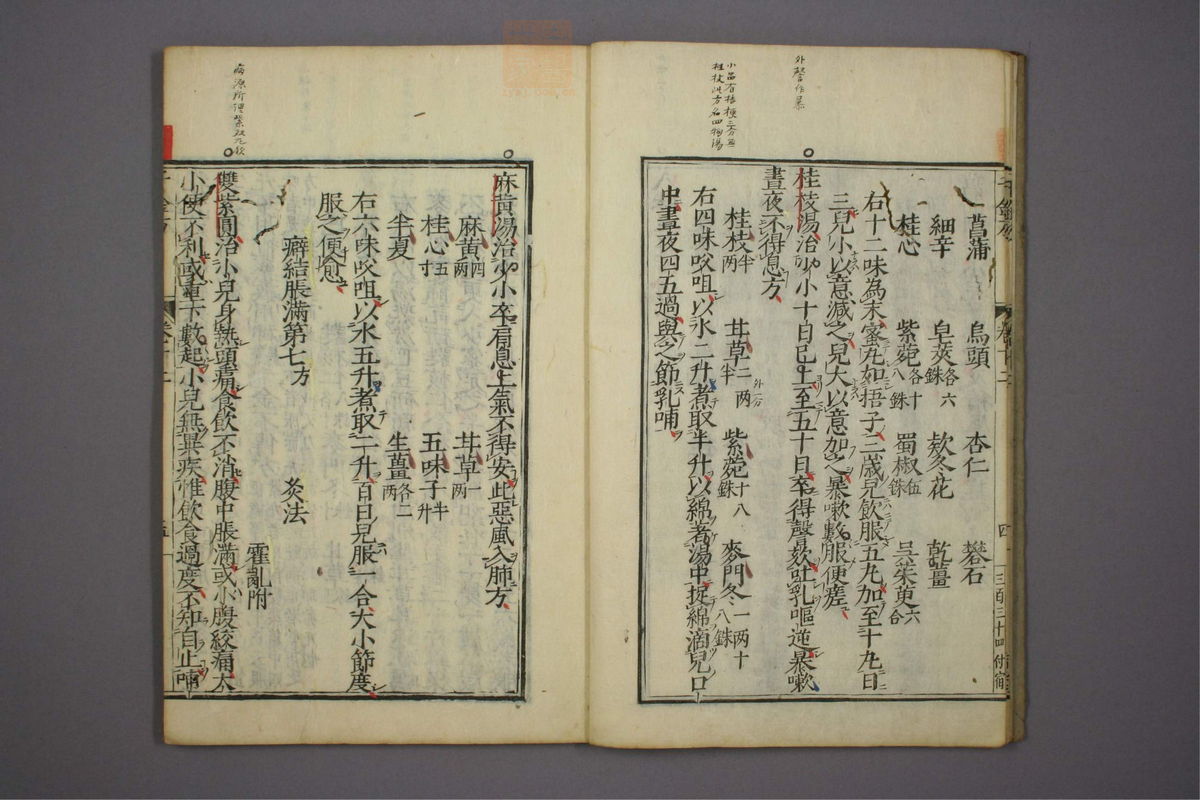 外聲作暴
小品有桔梗云方無
桂枝此方名四物湯
菖蒲 烏頭 杏仁 礬石
細辛 皁莢各六銖 欵冬花 乾薑
桂心 紫菀各十八銖 蜀椒伍銖 呉茱萸六合
右十二味為末蜜丸如梧子三歲兒飲服五丸加至十丸日
三兒小以意減之兒大以意加之暴嗽數服便瘥
桂枝湯治少小十日已上至五十日卒得聲欬吐乳嘔逆暴嗽
晝夜不得息方
桂枝半两 甘草二两半 紫菀十八銖 麥門冬一两十八銖
右四味㕮咀以水二升煮取半升以綿著湯中捉綿滴兒口
中晝夜四五過與之節乳哺
麻黃湯治少小卒肩息上氣不得安此惡風入肺方
麻黃四两 甘草一两
桂心五寸 五味子半升
半夏 生薑各二两
右六味㕮咀以水五升煮取二升百日兒服一合大小節度
服之便愈
癖結脹滿第七方 灸法 霍亂附
雙紫圓治小兒身熱頭痛食飲不消腹中脹滿或小腹絞痛大
小便不利或重下數起小兒無異疾惟飲食過度不知自止哺
卷十二
四
三百三十四